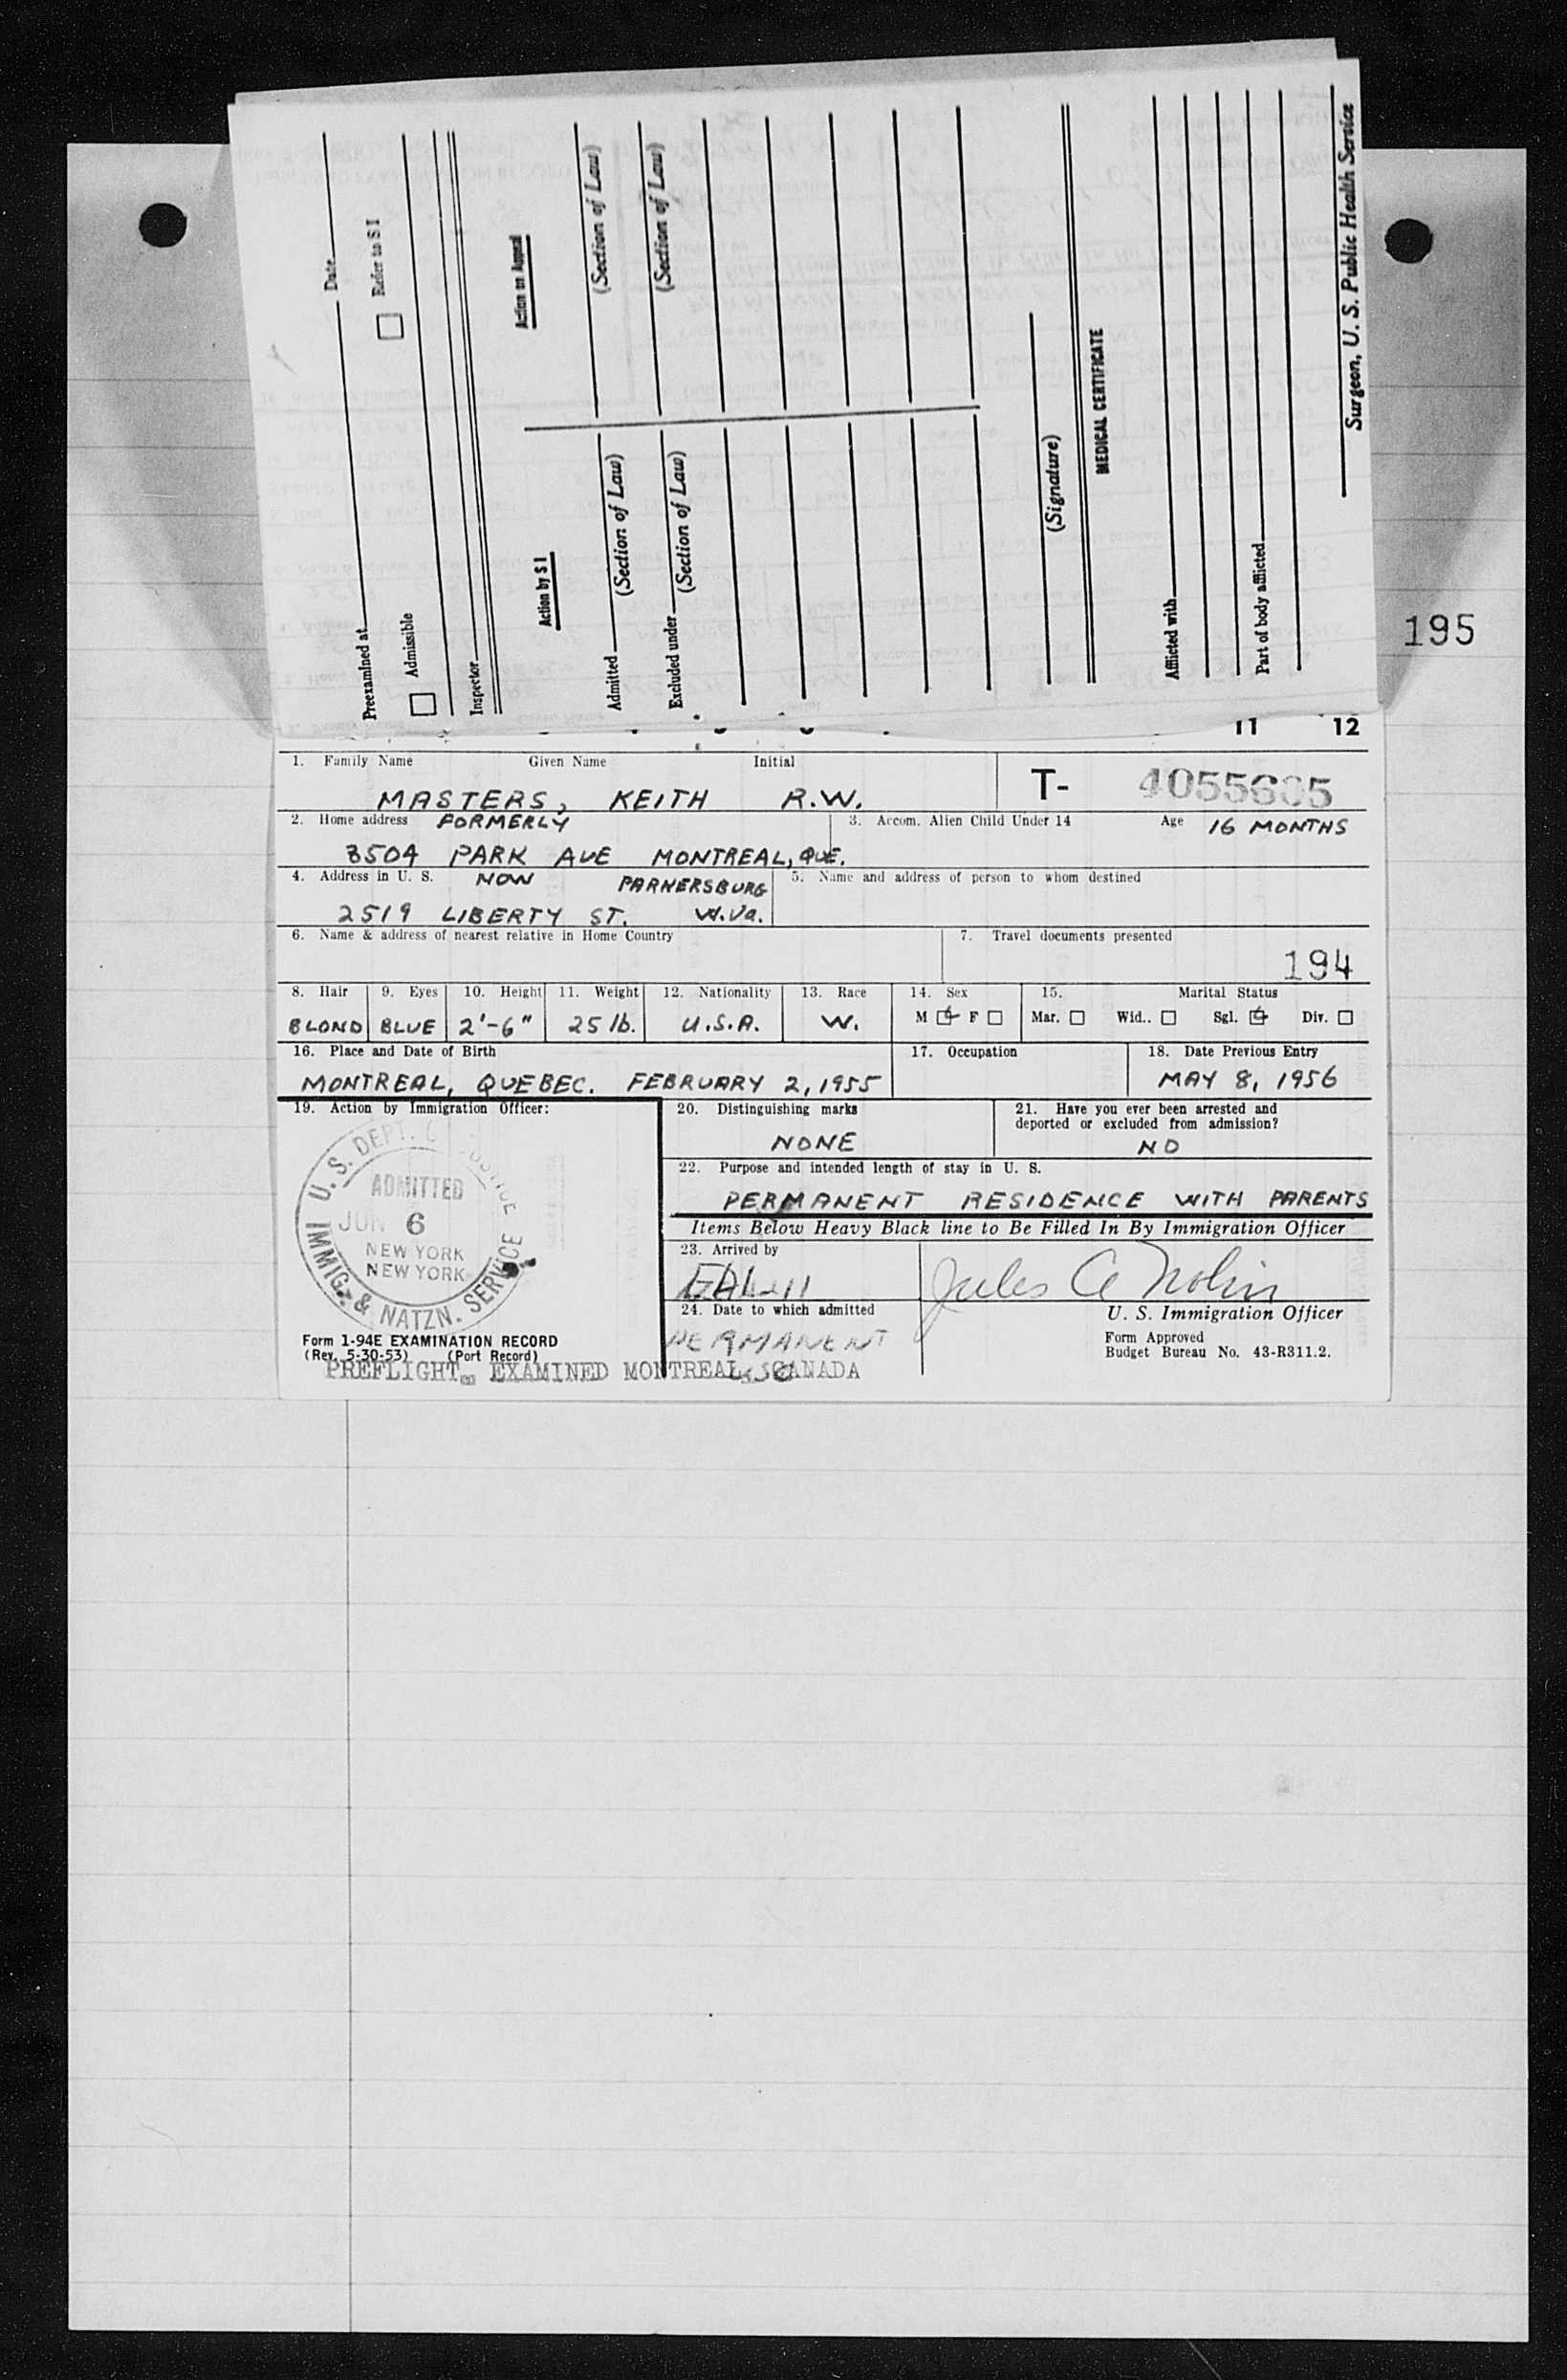 Preexamined at Date
Admissible Refer to S I
Inspector
Action by S I Action on Appeal
Admitted (Section of Law) (Section of Law)
Excluded under (Section of Law) (Section of Law)
(Signature)
MEDICAL CERTIFICATE
Afflicted with
Part of body afflicted
Surgeon, U. S. Public Health Service
195
11 12
1. Family Name Given Name Initial
MASTERS, KEITH R.W. T-
2. Home address FORMERLY 3. Accom. Alien Child Under 14 Age 16 MONTHS
3504 PARK AVE MONTREAL, QUE.
4. Address in U. S. NOW PARKERSBURG 5. Name and address of person to whom destined
2519 LIBERTY ST. W.Va.
6. Name & address of nearest relative in Home Country 7. Travel documents presented
194
8. Hair 9. Eyes 10. Height 11. Weight 12. Nationality 13. Race 14. Sex 15. Marital Status
BLOND BLUE 2'-6" 25 lb. U.S.A. W. M F Mar. Wid.. Sgl. Div.
16. Place and Date of Birth 17. Occupation 18. Date Previous Entry
MONTREAL, QUEBEC. FEBRUARY 2, 1955 MAY 8, 1956
19. Action by Immigration Officer: 20. Distinguishing marks 21. Have you ever been arrested and
deported or excluded from admission?
NONE NO
22. Purpose and intended length of stay in U. S.
PERMANENT RESIDENCE WITH PARENTS
Items Below Heavy Black line to Be Filled In By Immigration Officer
U. S. DEPT. OF JUSTICE
ADMITTED
JUN 6
NEW YORK
NEW YORK
IMMIG. & NATZN. SERVICE
23. Arrived by
Jules A Nolin
24. Date to which admitted U. S. Immigration Officer
PERMANENT
Form I-94E EXAMINATION RECORD Form Approved
(Rev. 5-30-53) (Port Record) Budget Bureau No. 43-R311.2.
PREFLIGHT EXAMINED MONTREAL CANADA